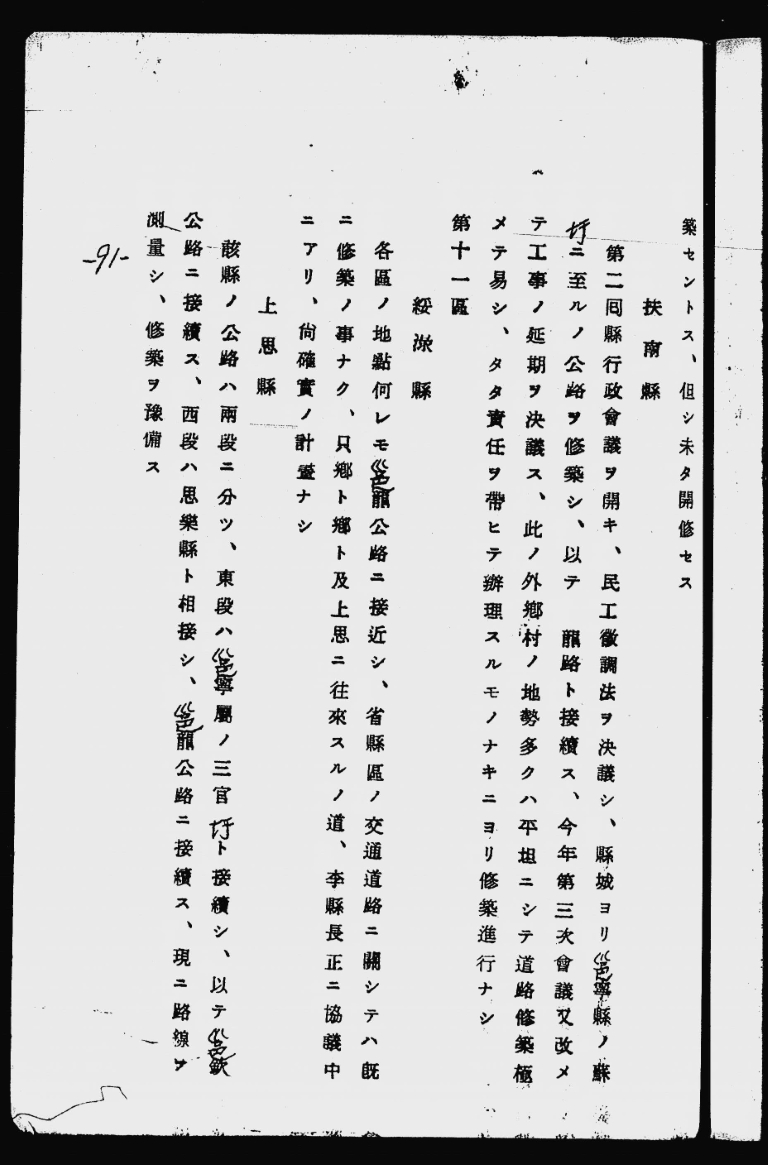 築セントス、但シ未タ開修セス
扶南縣
第二囘縣行政會議ヲ開キ、民工徵調法ヲ決議シ、縣城ヨリ邕寧縣ノ蘇
圩ニ至ルノ公路ヲ修築シ、以テ 龍路ト接續ス、今年第三次會議又改メ
テ工事ノ延期ヲ決議ス、此ノ外鄕村ノ地勢多クハ平坦ニシテ道路修築極
メテ易シ、タタ責任ヲ帶ヒテ辦理スルモノナキニヨリ修築進行ナシ
第十一區
綏淥縣
各區ノ地點何レモ邕龍公路ニ接近シ、省縣區ノ交通道路ニ關シテハ旣
ニ修築ノ事ナク、只鄕ト鄕ト及上思ニ往來スルノ道、李縣長正ニ協議中
ニアリ、尙確實ノ計畫ナシ
上思縣
該縣ノ公路ハ兩段ニ分ツ、東段ハ邕寧屬ノ三官圩ト接續シ、以テ邕欽
公路ニ接續ス、西段ハ思樂縣ト相接シ、邕龍公路ニ接續ス、現ニ路線ヲ
測量シ、修築ヲ豫備ス
-91-